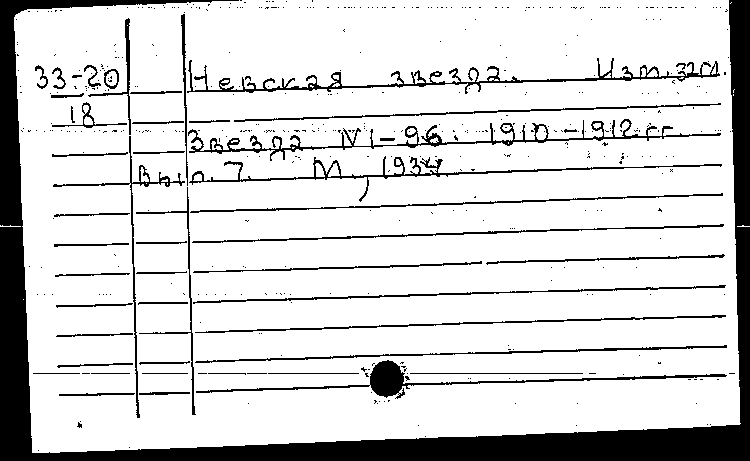 33-20 Невская звезда.
18
Звезда. N1-96. 1910-1912 гг.
Вып. 7. М., 1934